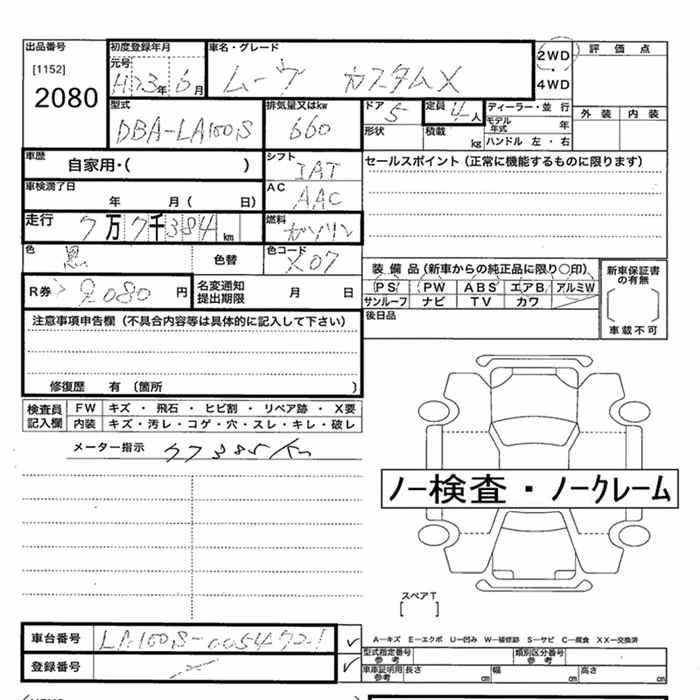 出品番号 [1152] 2080
初度登録年月 元号 H23年6月
車名・グレード ムーヴ カスタムX
2WD ・ 4WD
評価点
外装 内装
型式 DBA-LA100S
排気量又はkw 660
ドア 5 形状
定員 4人 積載 kg
ディーラー・並行
モデル年式 年
ハンドル 左・右
車歴 自家用・( )
シフト IAT
セールスポイント(正常に機能するものに限ります)
車検満了日 年 月( 日)
AC AAC
走行 7万7千384km
燃料 ガソリン
色 黒 色替
色コード X07
装備品(新車からの純正品に限り〇印)
PS PW ABS エアB アルミW
サンルーフ ナビ TV カワ
新車保証書の有無
車載不可
R券 9080円
名変通知提出期限 月 日
後日品
注意事項申告欄(不具合内容等は具体的に記入して下さい)
修復歴 有〔箇所 〕
検査員記入欄
FW キズ・飛石・ヒビ割・リペア跡・X要
内装 キズ・汚レ・コゲ・穴・スレ・キレ・破レ
メーター指示 77385km
ノー検査・ノークレーム
スペアT
[ ]
車台番号 LA100S-0054721
登録番号
A-キズ E-エクボ U-凹み W-補修跡 S-サビ C-腐食 XX-交換済
型式指定番号 参考
類別区分番号 参考
車庫証明用 参考 長さ cm 幅 cm 高さ cm